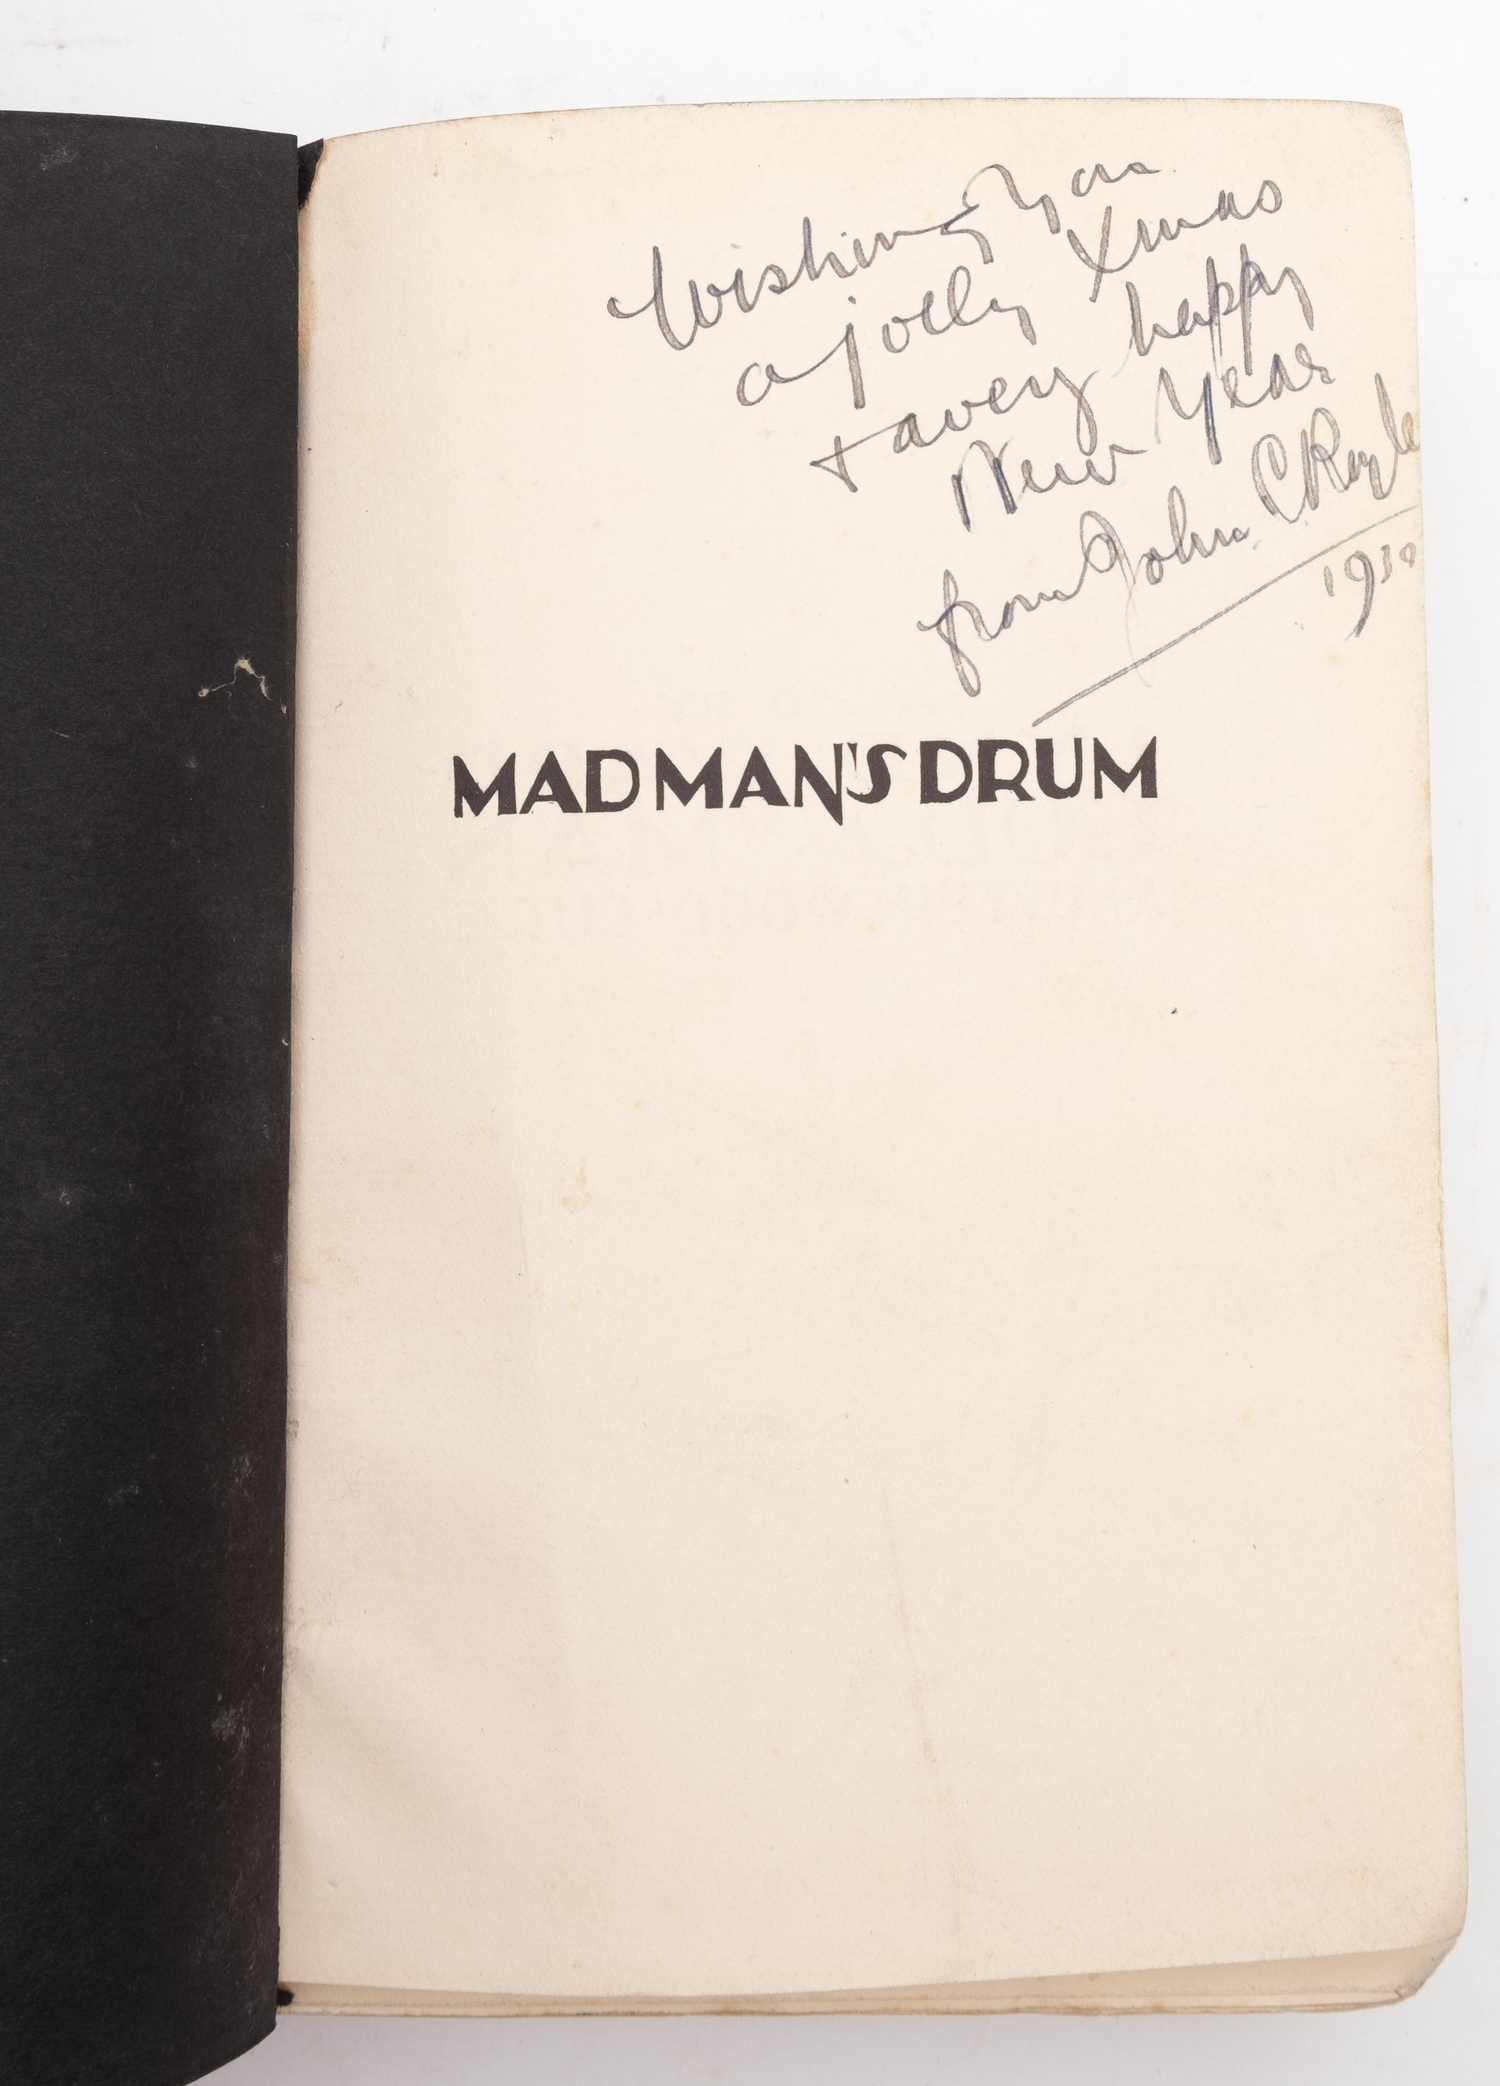 Wishing You
a jolly Xmas
+ a very happy
New Year
from John C Royle
1930
MADMAN'S DRUM